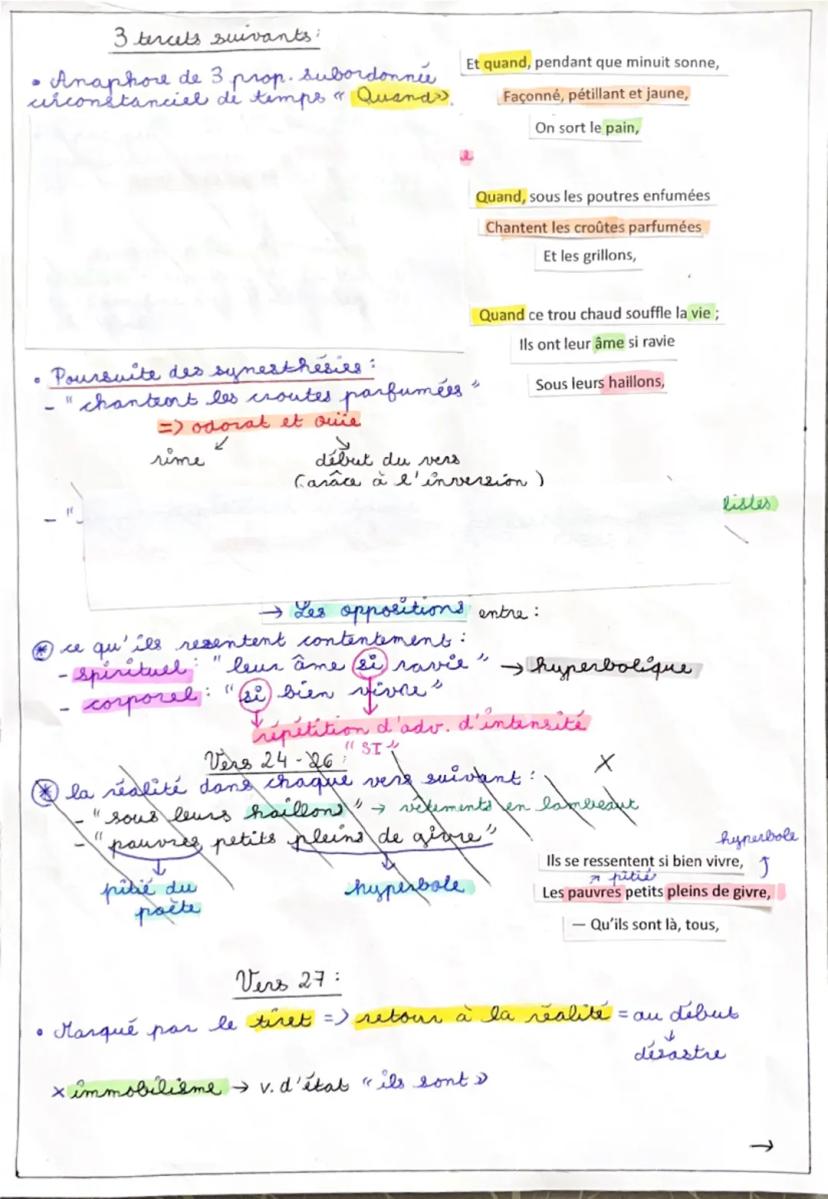 3 tercets suivants:
• Anaphore de 3 prop. subordonnée
circonstanciel de temps « Quand».
Et quand, pendant que minuit sonne,
Façonné, pétillant et jaune,
On sort le pain,
Quand, sous les poutres enfumées
Chantent les croûtes parfumées
Et les grillons,
Quand ce trou chaud souffle la vie ;
Ils ont leur âme si ravie
Sous leurs haillons,
• Poursuite des synesthésies :
- "chantent les croutes parfumées"
=> odorat et ouïe
rime
début du vers
(grâce à l'inversion)
- "
listes
→ Les oppositions entre :
* ce qu'ils resentent contentement :
- spirituel : "leur âme si ravie" → hyperbolique
- corporel : "si bien vivre"
répétition d'adv. d'intensité
"SI"
Vers 24-26 :
* la réalité dans chaque vers suivant :
X
- "sous leurs haillons" → vêtements en lambeaux
- "pauvres petits pleins de givre"
pitié du
poète
hyperbole
hyperbole
Ils se ressentent si bien vivre,
pitié
Les pauvres petits pleins de givre,
— Qu'ils sont là, tous,
Vers 27 :
• Marqué par le tiret => retour à la réalité = au début
désastre
x immobilisme → v. d'état « ils sont »
→